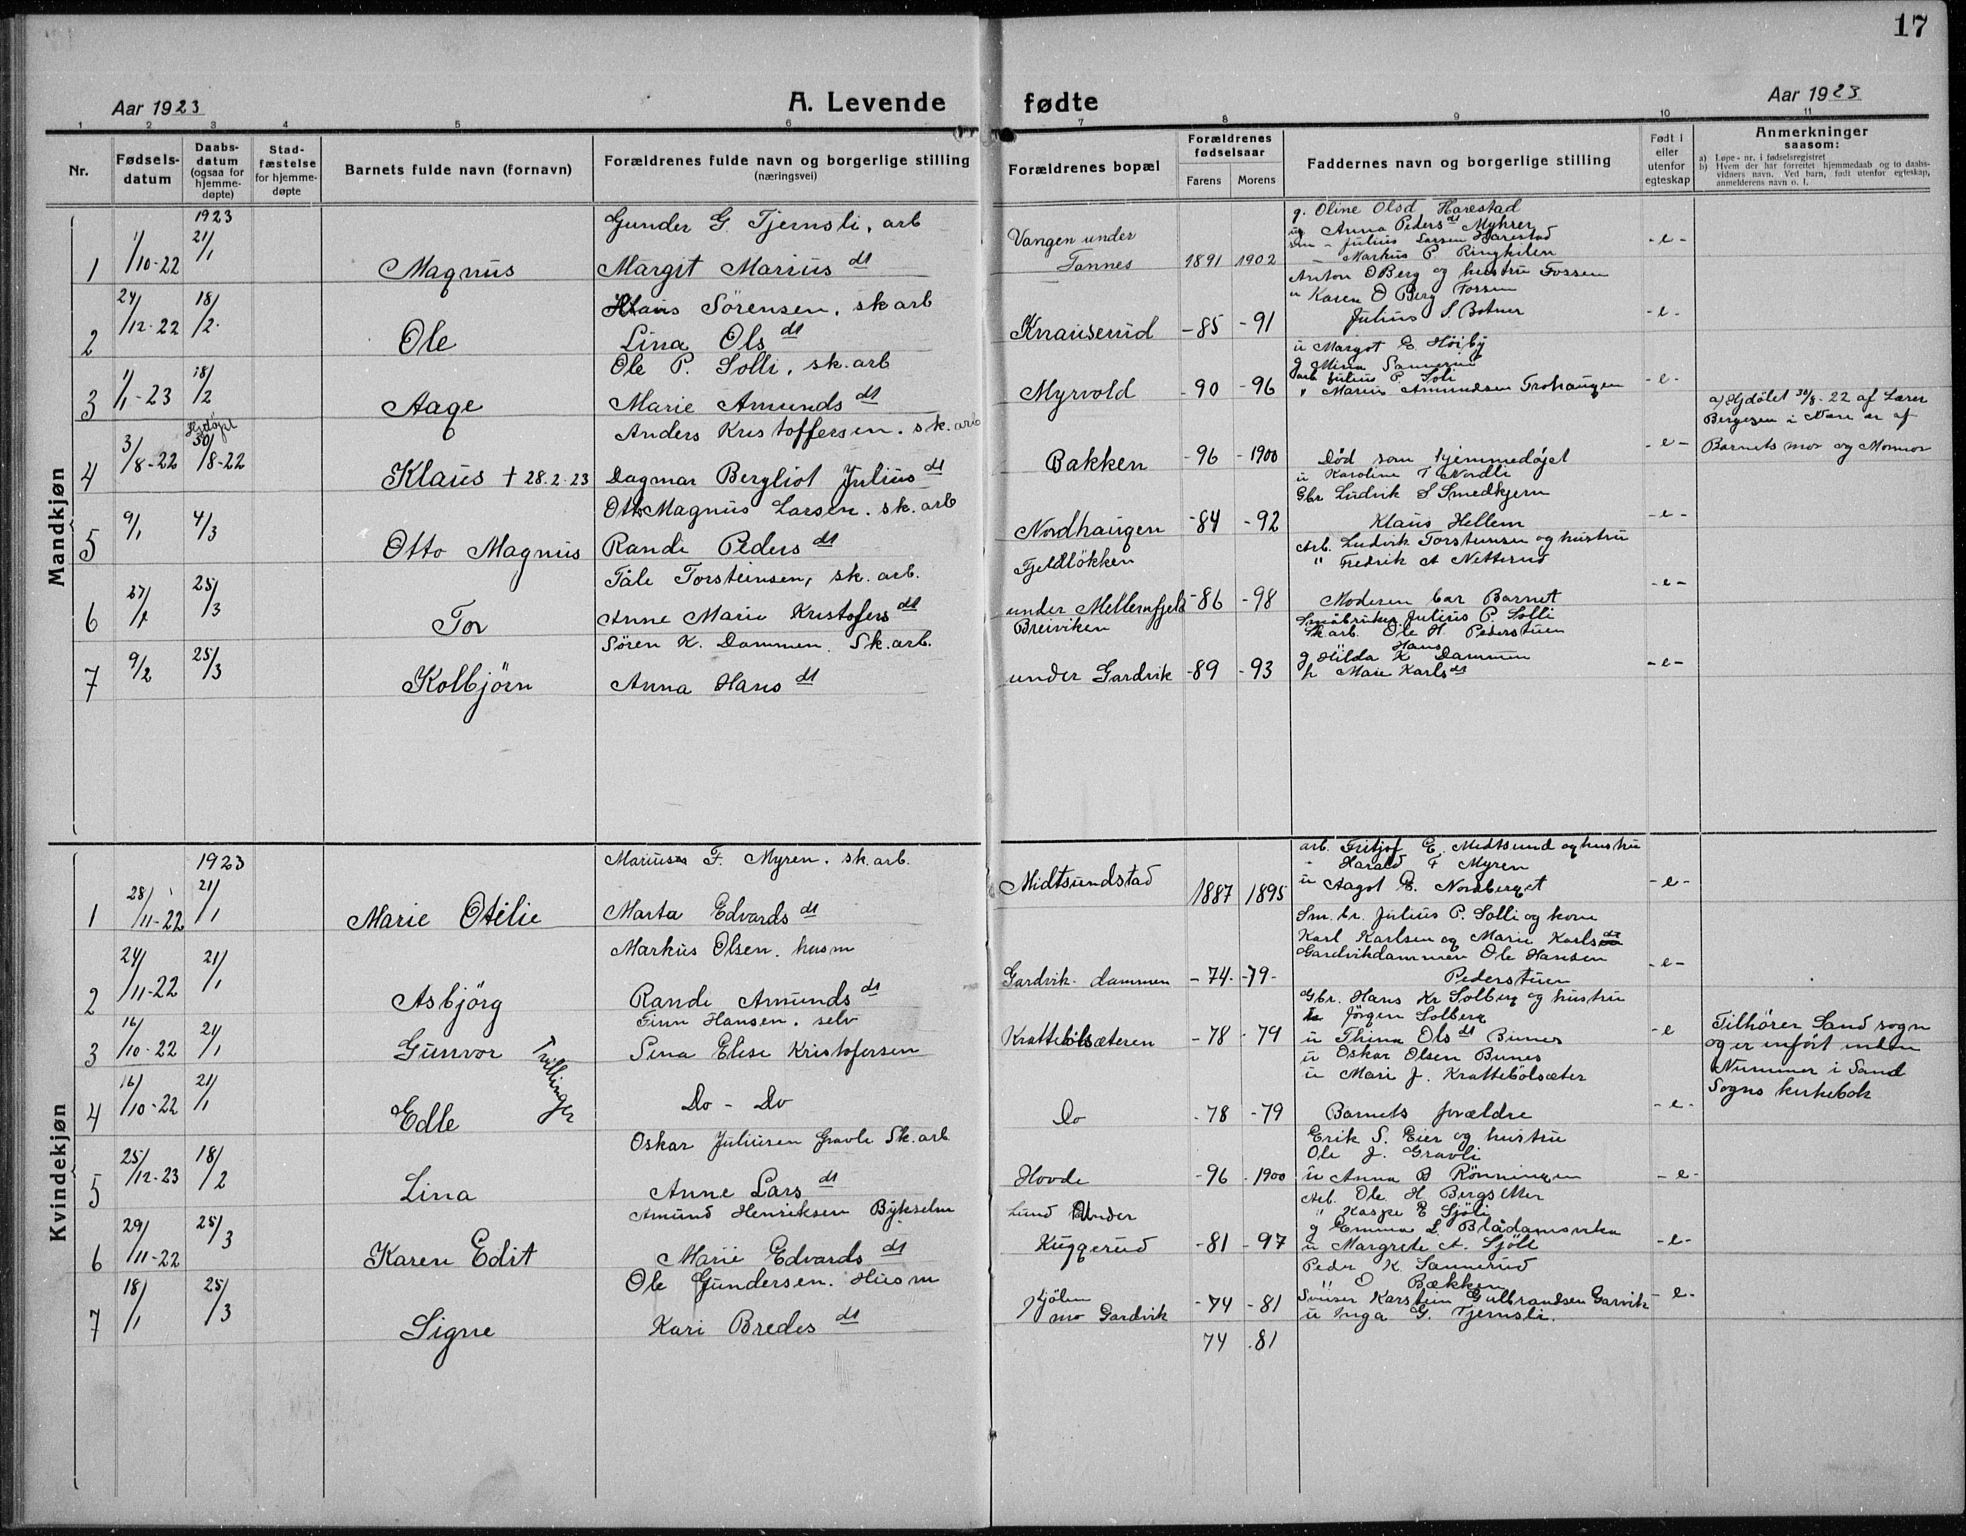 17
Aar 1923
A. Levende fødte
Aar 1923
1 2 3 4 5 6 7 8 9 10 11
Nr.
Fødsels-datum
Daabs-datum (ogsaa for hjemme-døpte)
Stad-fæstelse for hjemme-døpte
Barnets fulde navn (fornavn)
Forældrenes fulde navn og borgerlige stilling (næringsvei)
Forældrenes bopæl
Forældrenes fødselsaar
Farens Morens
Faddernes navn og borgerlige stilling
Født i eller utenfor egteskap
Anmerkninger saasom:
a) Løpe-nr. i fødselsregistret
b) Hvem der har forrettet hjemmedaab og to daabs-vidners navn. Ved barn, født utenfor egteskap, anmelderens navn o. l.
Mandkjøn
1923
1 1/10-22 21/1 Magnus
Gunder G. Tjernsli, arb
Margit Marius dt
Vangen under
Tannes 1891 1902
g. Oline Olsd Harestad
ug Anna Peders dt Myhrer
sm - Julius Larsen Harestad
- Markus P Ringhilen
- e -
2 24/12-22 18/2 Ole
Klaus Sörensen, sk arb
Lina Ols dt
Knauserud -85 -91
Anton O Berg og hustru Fossen
u Karen O Berg Fossen
Julius S Botner
- e -
3 1/1-23 18/2 Aage
Ole P. Solli, sk. arb
Marie Amunds dt
Myrvold -90 -96
u Margot E. Höiby
g Mina Sannerud
arb Julius P. Soli
" Marius Amundsen Trohaugen
- e -
4 3/8-22 Hjdöpt 30/8-22 Klaus † 28.2.23
Anders Kristoffersen. sk. arb
Dagmar Bergliot Julius dt
Bakken -96 -1900
Död som hjemmedöpt
- e -
a) Hjdöbt 30/8-22 af Lærer
Bergesen i Nær er af
Barnets mor og Mormor
5 9/1 4/3 Otto Magnus
Otto Magnus Larsen. sk. arb
Randi Peders dt
Nordhaugen -84 -92
u Karoline T Nordli
Gbr Ludvik S Smedkjern
Klaus Hellem
- e -
6 27/1 25/3 Tor
Tåle Torsteinsen, sk. arb.
Anne Marie Kristofers dt
Fjeldløkken
under Mellemfjeld -86 -98
Arb. Ludvik Torsteinsen og hustru
" Fredrik A Netterud
Moderen bar Barnet
- e -
7 9/2 25/3 Kolbjörn
Sören K. Dammen. Sk. arb.
Anna Hans dt
Breiviken
under Gardvik -89 -93
Småbruker Julius P. Solli
Sk arb. Ole H. Pederstuen
Hans
g Hilda K Dammen
p Marie Karls dt
- e -
Kvindekjøn
1923
1 28/11-22 21/1 Marie Otilie
Marius F. Myren. sk. arb.
Marta Edvards dt
Midtsundstad 1887 1895
arb. Fritjof E. Midtsund og hustru
" Harald F Myren
u Aagot E. Nordberget
- e -
2 24/11-22 21/1 Asbjörg
Markus Olsen. husm
Randi Amunds dt
Gardvik-dammen -74- -79-
Sm. br. Julius P. Solli og kone
Karl Karlsen og Marie Karls dt
Gardvikdammen Ole Hansen
Pederstuen
- e -
3 16/10-22 21/1 Gunvor Tvillinger
Finn Hansen. selv
Sina Elise Kristofersen
Krattebölsæteren -78 -79
Gbr. Hans Kr Solberg og hustru
Jörgen Solberg
u Thina Ols dt Bunes
u Oskar Olsen Bunes
u Mari J. Krattebölsæter
- e
Tilhører Sand sogn
og er inført uden
Nummer i Sand
Sogns kirkebok
4 16/10-22 21/1 Edle
Do - Do
Do -78 -79
Barnets forældre
- e -
5 25/12-23 18/2 Lina
Oskar Juliusen Gravli Sk. arb
Anne Lars dt
Hovde -96 -1900
Erik S. Eier og hustru
Ole J. Gravli
u Anna B Rönningen
- e -
6 29/11-22 25/3 Karen Edit
Amund Henriksen Bykselm
Marie Edvards dt
Lund Under
Kuggerud -81 -97
Arb. Ole H Bergsetter
" Kaspe E Sjöli
g Emma L
u Margrete A. Sjöli
- e -
7 18/1 25/3 Signe
Ole Gundersen. Husm
Kari Bredes dt
Kjölen
mo Gardvik -74 -81
74 .81
Peder K. Sannerud
" O Bækken
Karstein Gulbrandsen Garvik
u Inga G. Tjernsli.
- e -